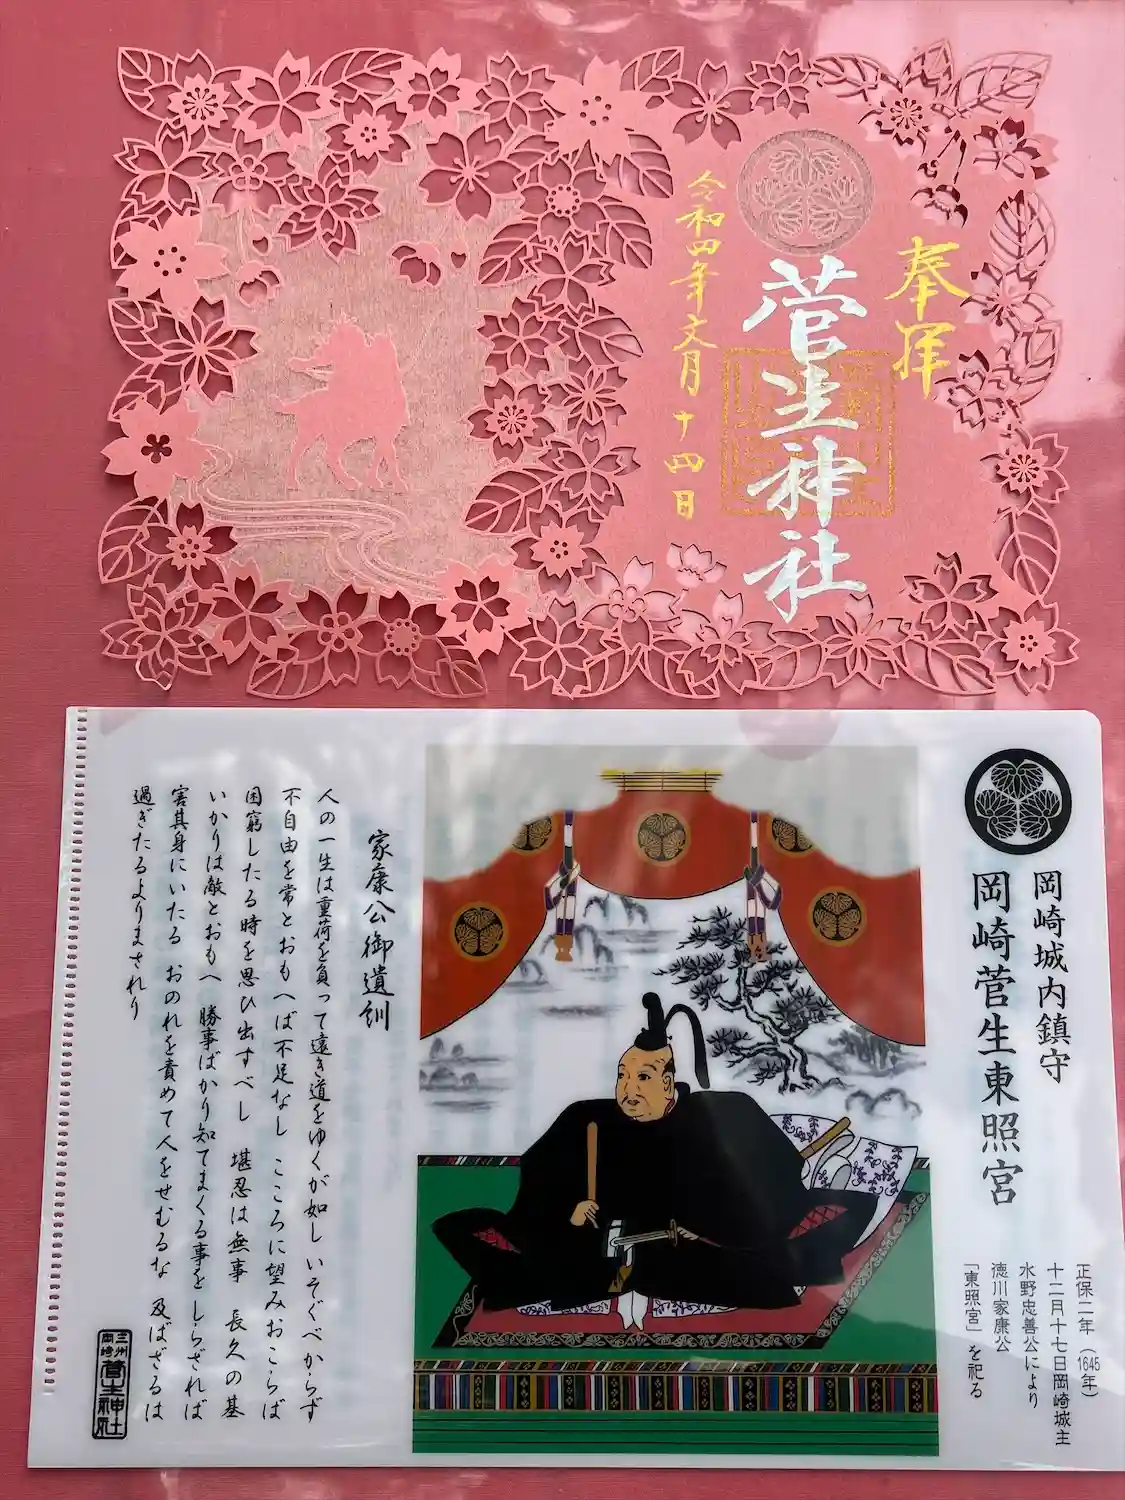 奉拝
菅生神社
令和四年文月十四日
岡崎城内鎮守
岡崎菅生東照宮
正保二年（1645年）
十二月十七日岡崎城主
水野忠善公により
徳川家康公
「東照宮」を祀る
家康公御遺訓
人の一生は重荷を負って遠き道をゆくが如し いそぐべからず
不自由を常とおもへば不足なし こころに望みおこらば
困窮したる時を思ひ出すべし 堪忍は無事 長久の基
いかりは敵とおもへ 勝事ばかり知てまくる事をしらざれば
害其身にいたる おのれを責めて人をせむるな 及ばざるは
過ぎたるよりまされり
三州
岡崎
菅生神社